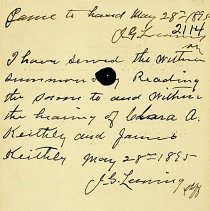 Came to hand May 28th 1895
J.G. Leming
2114
I have served the within
summons by Reading
the same to and within
the hearing of Clara A.
Keithly and James
Keithly May 28th 1895
J.G. Leming